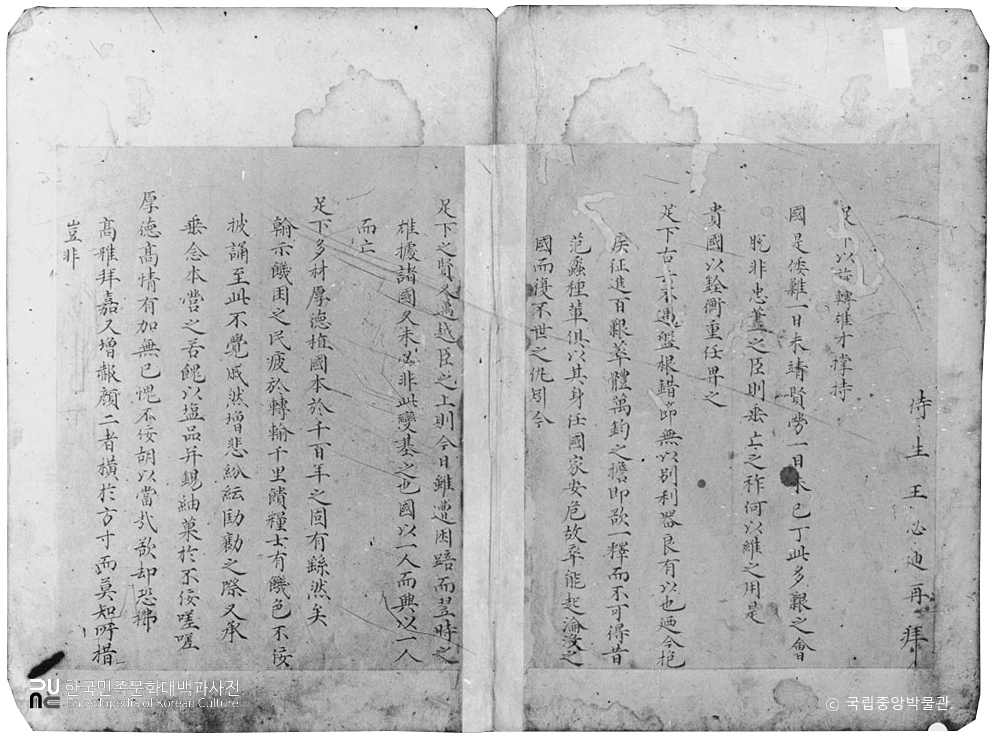 侍生王必迪再拜
足下以旋轉雄才撐持
國是倭難一日未靖賢勞一日未已丁此多艱之會
脫非忠藎之臣則垂亡之祚何以維之用是
貴國以銓衡重任畀之
足下古云不遇盤根錯節無以別利器良有以也廼今抱
疾征進百艱萃體萬鈞之擔即欲一釋而不可得昔
范蠡種輩俱以其身任國家安危故卒能起淪沒之
國而復不世之仇矧今
足下之賢又萬越臣之上則今日雖遭困踣而
雄據諸國又未必非此變基之也國以一人而興以一人
而亡
足下多材厚德植國本於千百年之固有繇然矣
翰示饑困之民疲於轉輸千里饋糧士有饑色不佞
披誦至此不覺戚然增悲紛紜劻勷之際又承
垂念本營之苦餽以塩品并錫紬菓於不佞嗟嗟
厚德高情有加無已愧不佞胡以當哉欲却恐拂
高雅拜嘉又增赧顏二者橫於方寸而莫知所措
豈非
한국민족문화대백과사전
Encyclopedia of Korean Culture
© 국립중앙박물관